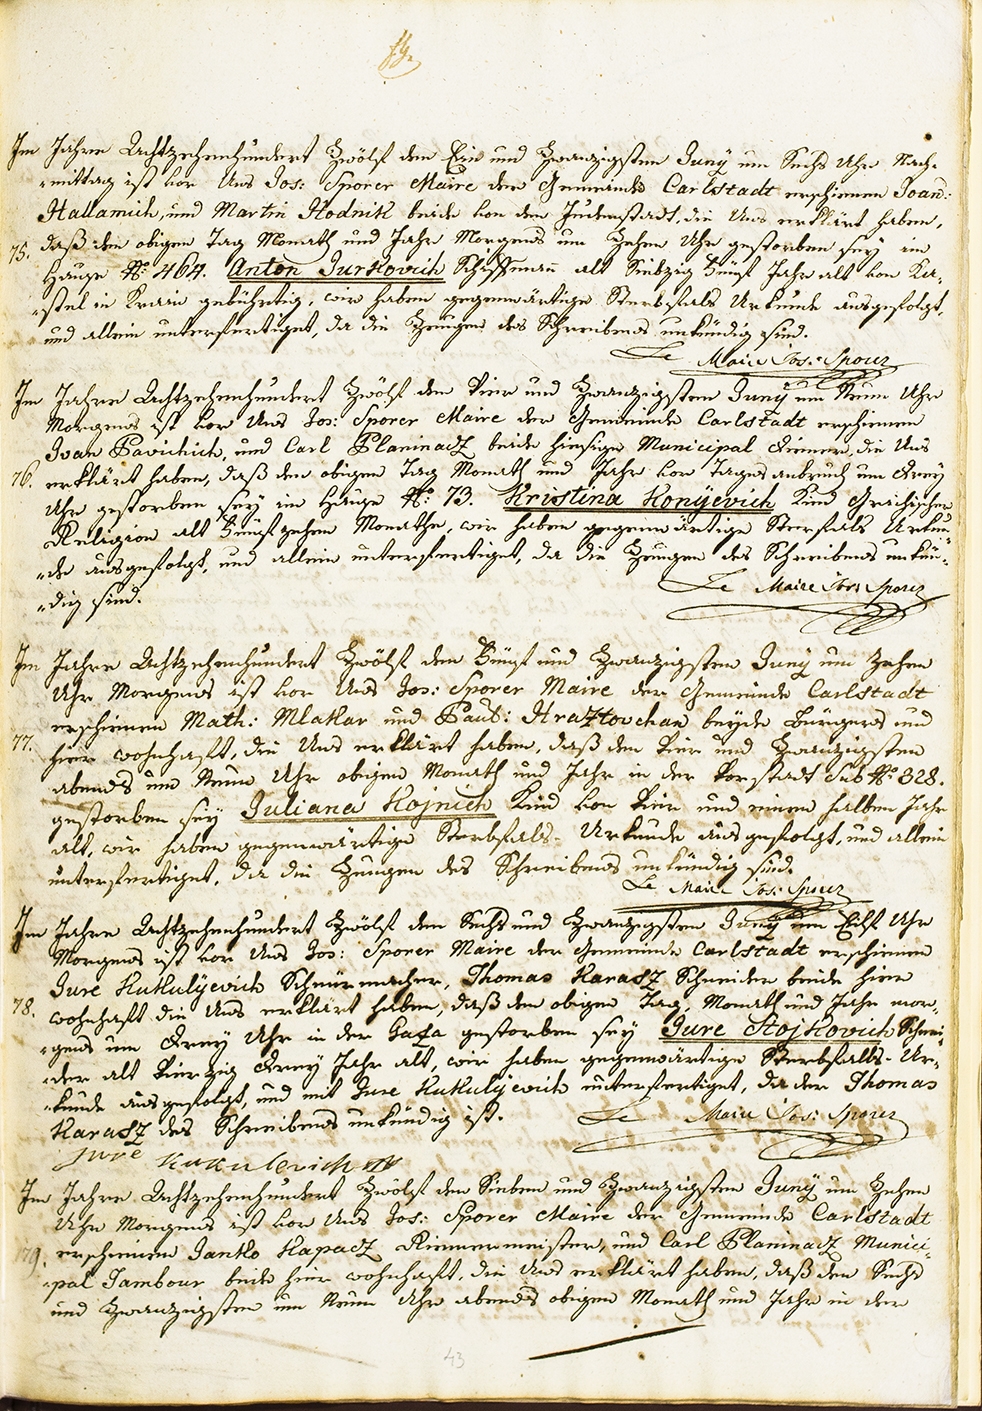 Im Jahre Achtzehenhundert Zwölf den Ein und Zwanzigsten Juny um Sechs Uhr Nach-
-mittag ist vor Uns Jos: Sporer Maire der Gemeinde Carlstadt erschienen Joan:
Hallamich, und Martin Hodnik beide von der, die Uns erklärt haben,
75. daß den obigen Tag Monath und Jahr Morgens um Zehen Uhr gestorben sey im
Hause No: 464. Anton Jurkovich Schiffmann alt Siebzig Fünf Jahr alt von Ka-
-stel in Krain gebührtig, wir haben gegenwärtige Sterbfals Urkunde ausgefolgt,
und allein unterfertiget, da die Zeugen des Schreibens unkündig sind.
Le Maire Jos: Sporer
Im Jahre Achtzehenhundert Zwölf den Vier und Zwanzigsten Juny um Neun Uhr
Morgens ist vor Uns Jos: Sporer Maire der Gemeinde Carlstadt erschienen
Ivan Pavichich, und Carl Planinacz beide hiesige Municipal Diener, die Uns
76. erklärt haben, daß den obigen Tag Monath und Jahr vor Tages anbruch um Drey
Uhr gestorben sey im Hause No: 73. Kristina Konyevich Kind Grichischer
Religion alt Fünfzehen Monathe, wir haben gegenwärtige Sterfals Urkun-
-de ausgefolgt, und allein unterfertiget, da die Zeugen des Schreibens unkün-
-dig sind.
Le Maire Jos: Sporer
Im Jahre Achtzehenhundert Zwölf den Fünf und Zwanzigsten Juny um Zehen
Uhr Morgens ist vor Uns Jos: Sporer Maire der Gemeinde Carlstadt
erschienen Math: Mlakar und Paul: Hraztovchan beyde Bürgers und
77. hier wohnhaft, die Uns erklärt haben, daß den Vier und Zwanzigsten
abends um Neun Uhr obigen Monath und Jahr in der Vorstadt Sub No: 328.
gestorben sey Juliana Kojnich Kind von Vier und einen halben Jahr
alt, wir haben gegenwärtige Sterbfals- Urkunde ausgefolgt, und allein
unterfertiget, da die Zeugen des Schreibens unkündig sind.
Le Maire Jos: Sporer
Im Jahre Achtzehenhundert Zwölf den Sechs und Zwanzigsten Juny um Eilf Uhr
Morgens ist vor Uns Jos: Sporer Maire der Gemeinde Carlstadt erschienen
Jure Kukulyevich Schnürmacher, Thomas Karasz Schneider beide hier
78. wohnhaft die Uns erklärt haben, daß den obigen Tag, Monath und Jahr mor-
-gens um Drey Uhr in der Gaza gestorben sey Jure Stojkovich Schnei-
-der alt Vierzig Drey Jahr alt, wir haben gegenwärtige Sterbfalls- Ur-
-kunde ausgefolgt, und mit Jure Kukulyevich unterfertiget, da der Thomas
Karasz des Schreibens unkündig ist.
Le Maire Jos: Sporer
Jure Kukulevich
Im Jahre Achtzehenhundert Zwölf den Sieben und Zwanzigsten Juny um Zehen
Uhr Morgens ist vor Uns Jos: Sporer Maire der Gemeinde Carlstadt
79. erschienen Janko Kapacz Riemermeister, und Carl Planinacz Munici-
-pal Tambour beide hier wohnhaft, die Uns erklärt haben, daß den Sechs
und Zwanzigsten um Neun Uhr abends obigen Monath und Jahr in der
43